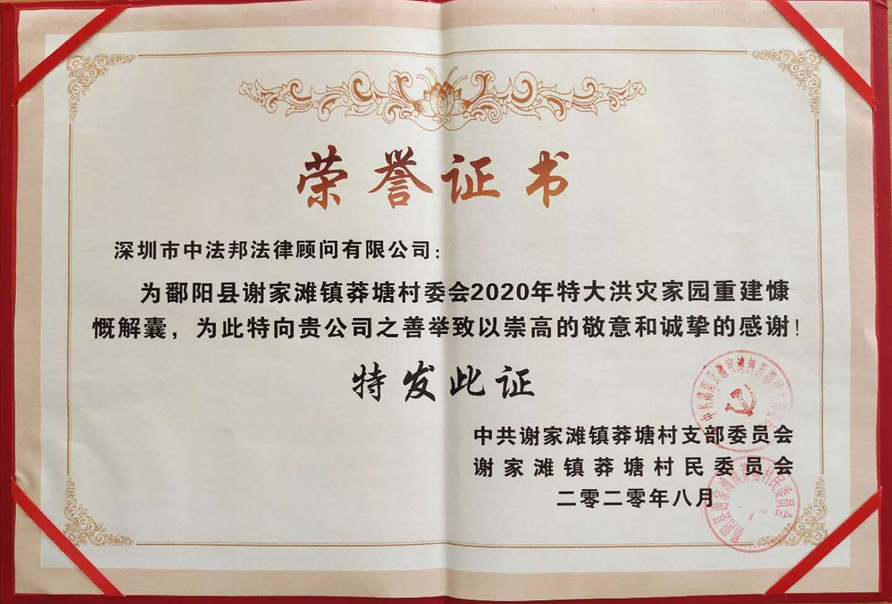 荣誉证书
深圳市中法邦法律顾问有限公司：
为鄱阳县谢家滩镇莽塘村委会2020年特大洪灾家园重建慷
慨解囊，为此特向贵公司之善举致以崇高的敬意和诚挚的感谢！
特发此证
中共谢家滩镇莽塘村支部委员会
谢家滩镇莽塘村民委员会
二零二零年八月